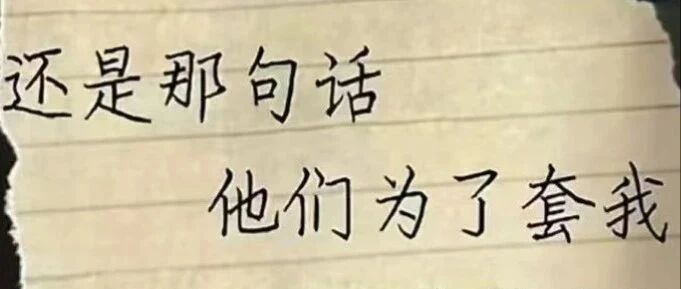 还是那句话
他们为了套我